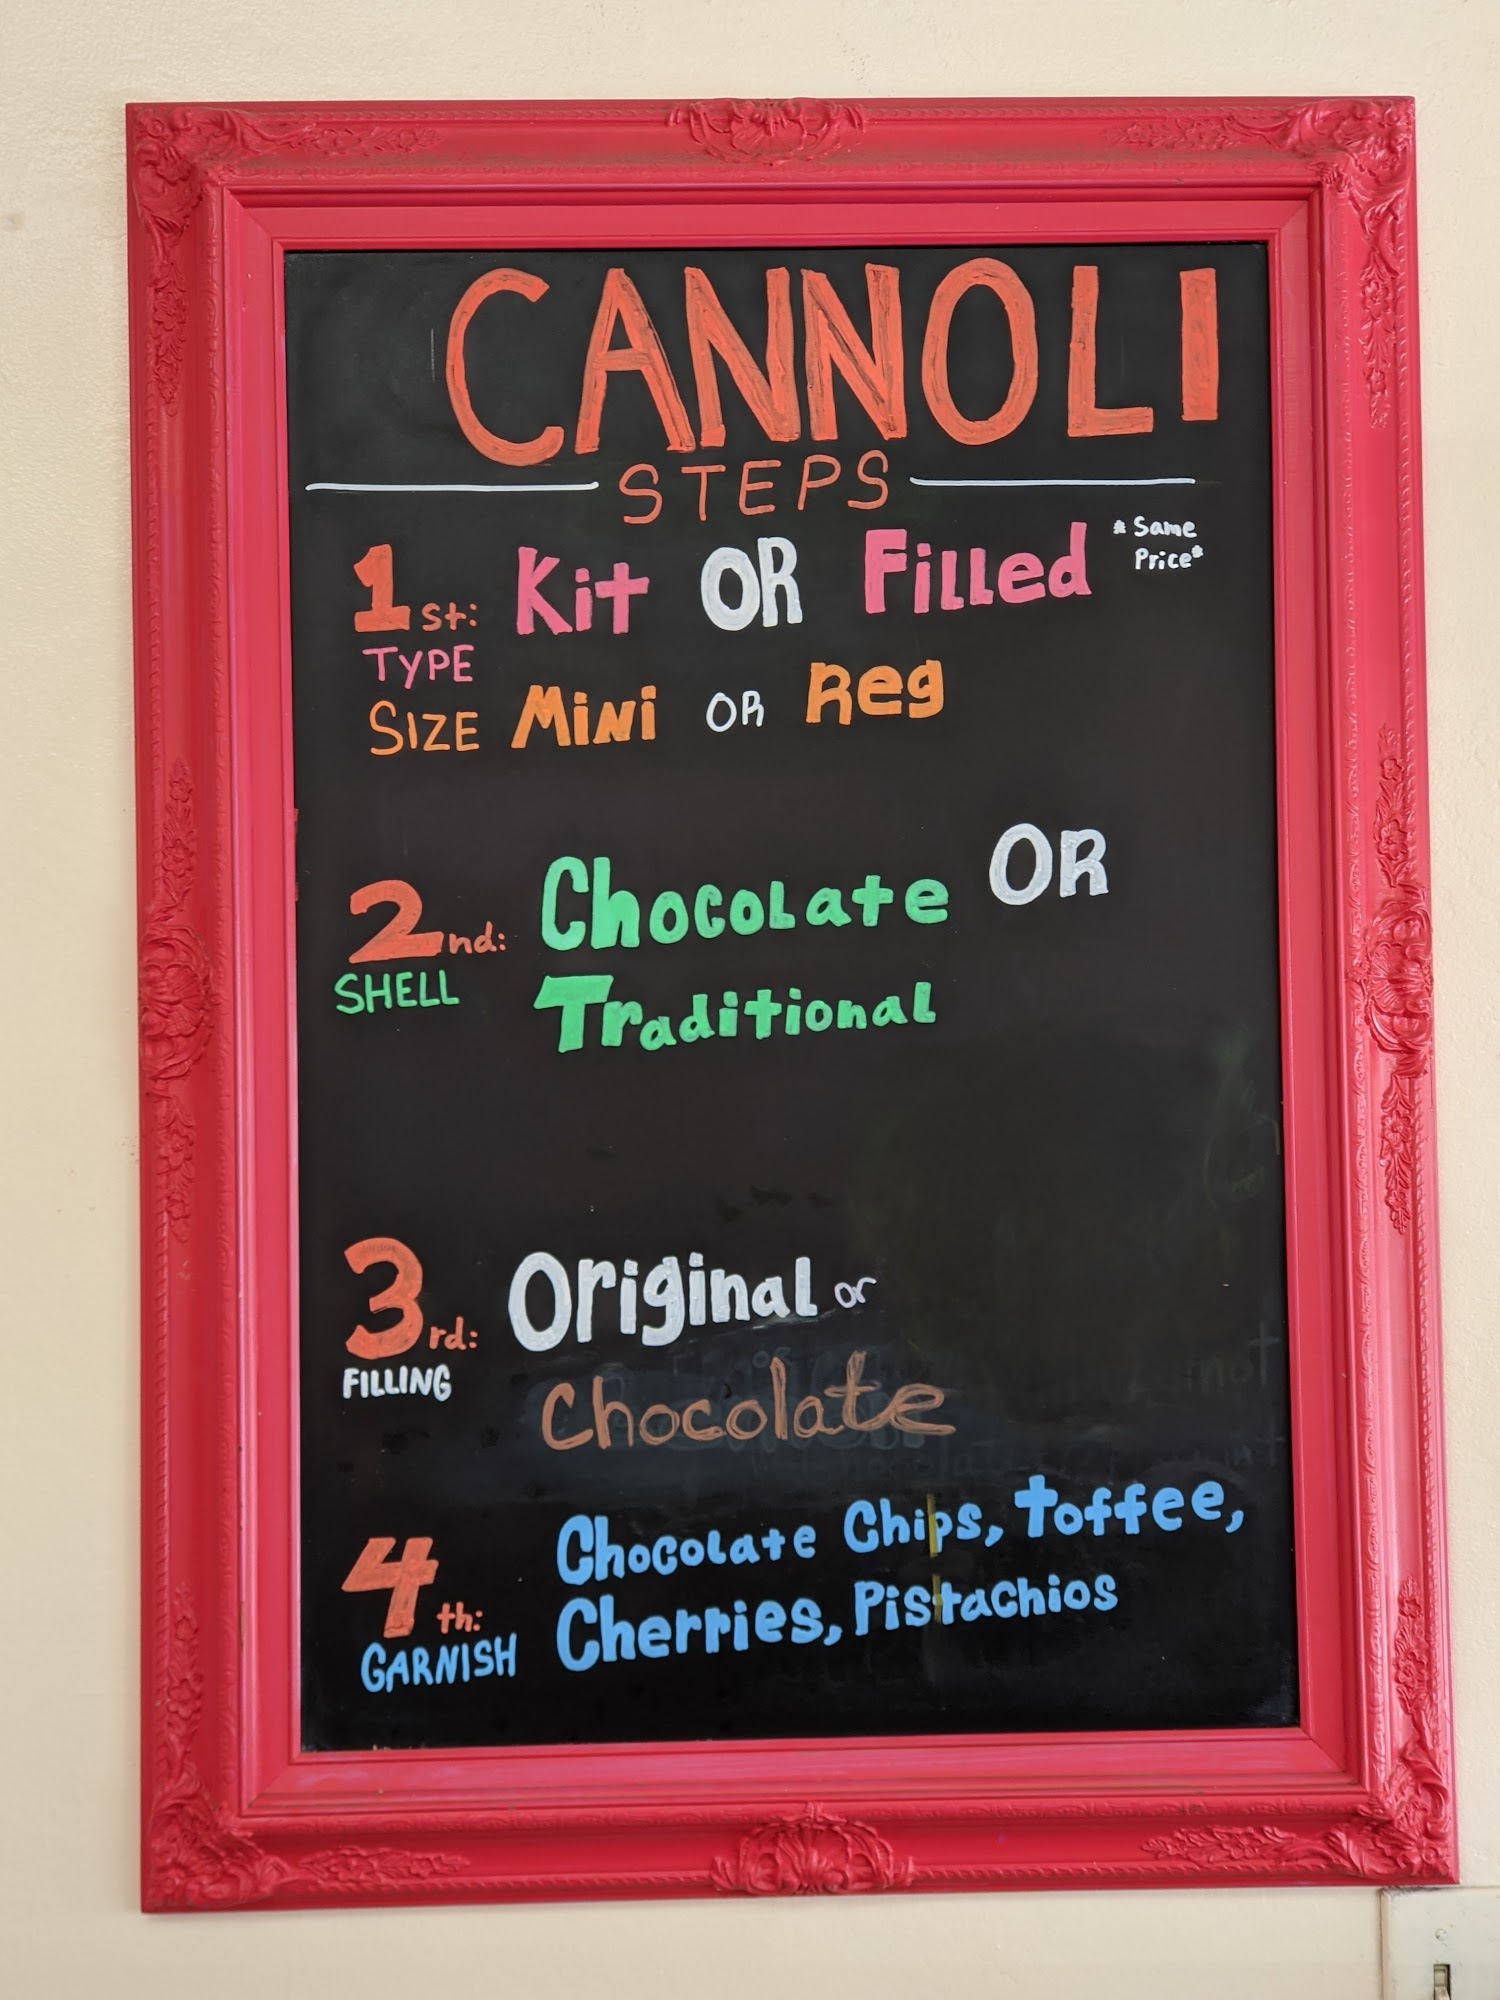 CANNOLI
STEPS
1st: Kit OR Filled *Same Price*
TYPE
SIZE Mini OR Reg
2nd: Chocolate OR
SHELL Traditional
3rd: Original or
FILLING Chocolate
4th: Chocolate Chips, Toffee,
GARNISH Cherries, Pistachios